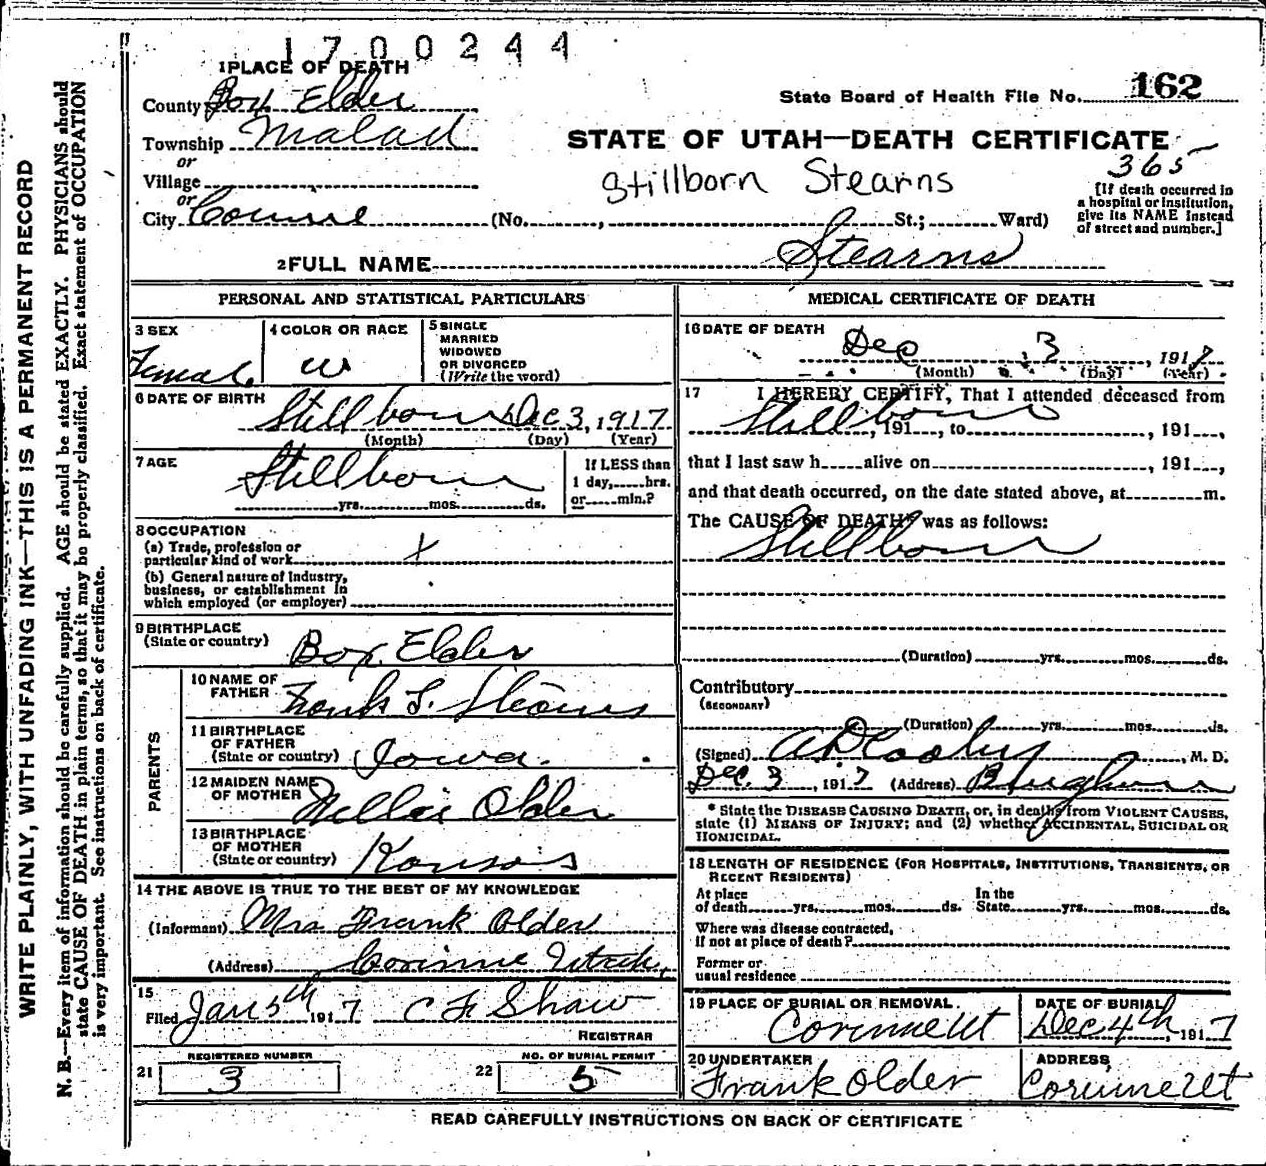 1700244
1 PLACE OF DEATH
County Box Elder
State Board of Health File No. 162
Township Malad
STATE OF UTAH—DEATH CERTIFICATE
or
365
Village
Stillborn Stearns
[If death occurred in
a hospital or institution,
give its NAME instead
of street and number.]
or
City Corinne (No. , St.; Ward)
2 FULL NAME Stearns
PERSONAL AND STATISTICAL PARTICULARS
3 SEX
Female
4 COLOR OR RACE
W
5 SINGLE
MARRIED
WIDOWED
OR DIVORCED
(Write the word)
6 DATE OF BIRTH
Stillborn Dec 3, 1917
(Month) (Day) (Year)
7 AGE
Stillborn
yrs. mos. ds.
If LESS than
1 day, hrs.
or min.?
8 OCCUPATION
(a) Trade, profession or
particular kind of work x
(b) General nature of Industry,
business, or establishment in
which employed (or employer)
9 BIRTHPLACE
(State or country) Box Elder
PARENTS
10 NAME OF
FATHER Frank L. Stearns
11 BIRTHPLACE
OF FATHER
(State or country) Iowa.
12 MAIDEN NAME
OF MOTHER Nellie Older
13 BIRTHPLACE
OF MOTHER
(State or country) Kansas
14 THE ABOVE IS TRUE TO THE BEST OF MY KNOWLEDGE
(Informant) Mrs Frank Older
(Address) Corinne Utah,
15
Filed Jan 5th 1917 C F Shaw
REGISTRAR
21 REGISTERED NUMBER
3
22 NO. OF BURIAL PERMIT
5
MEDICAL CERTIFICATE OF DEATH
16 DATE OF DEATH
Dec 3, 1917
(Month) (Day) (Year)
17 I HEREBY CERTIFY, That I attended deceased from
Stillborn, 191 , to , 191 ,
that I last saw h alive on , 191 ,
and that death occurred, on the date stated above, at m.
The CAUSE OF DEATH* was as follows:
Stillborn
(Duration) yrs. mos. ds.
Contributory
(SECONDARY)
(Duration) yrs. mos. ds.
(Signed) , M. D.
Dec. 3, 1917 (Address)
* State the DISEASE CAUSING DEATH, or, in deaths from VIOLENT CAUSES,
state (1) MEANS OF INJURY; and (2) whether ACCIDENTAL, SUICIDAL OR
HOMICIDAL.
18 LENGTH OF RESIDENCE (FOR HOSPITALS, INSTITUTIONS, TRANSIENTS, OR
RECENT RESIDENTS)
At place In the
of death yrs. mos. ds. State yrs. mos. ds.
Where was disease contracted,
if not at place of death?
Former or
usual residence
19 PLACE OF BURIAL OR REMOVAL.
Corinne Ut
DATE OF BURIAL
Dec 4th, 1917
20 UNDERTAKER
Frank Older
ADDRESS
Corinne Ut
READ CAREFULLY INSTRUCTIONS ON BACK OF CERTIFICATE
WRITE PLAINLY, WITH UNFADING INK—THIS IS A PERMANENT RECORD
N. B.—Every item of information should be carefully supplied. AGE should be stated EXACTLY. PHYSICIANS should
state CAUSE OF DEATH in plain terms, so that it may be properly classified. Exact statement of OCCUPATION
is very important. See instructions on back of certificate.